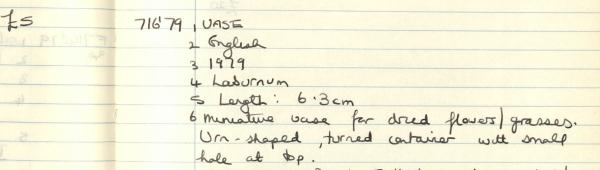 £5 716'79 1 VASE
2 English
3 1979
4 Laburnum
5 Length: 6.3cm
6 Miniature vase for dried flowers/grasses.
Urn-shaped, turned container with small
hole at top.